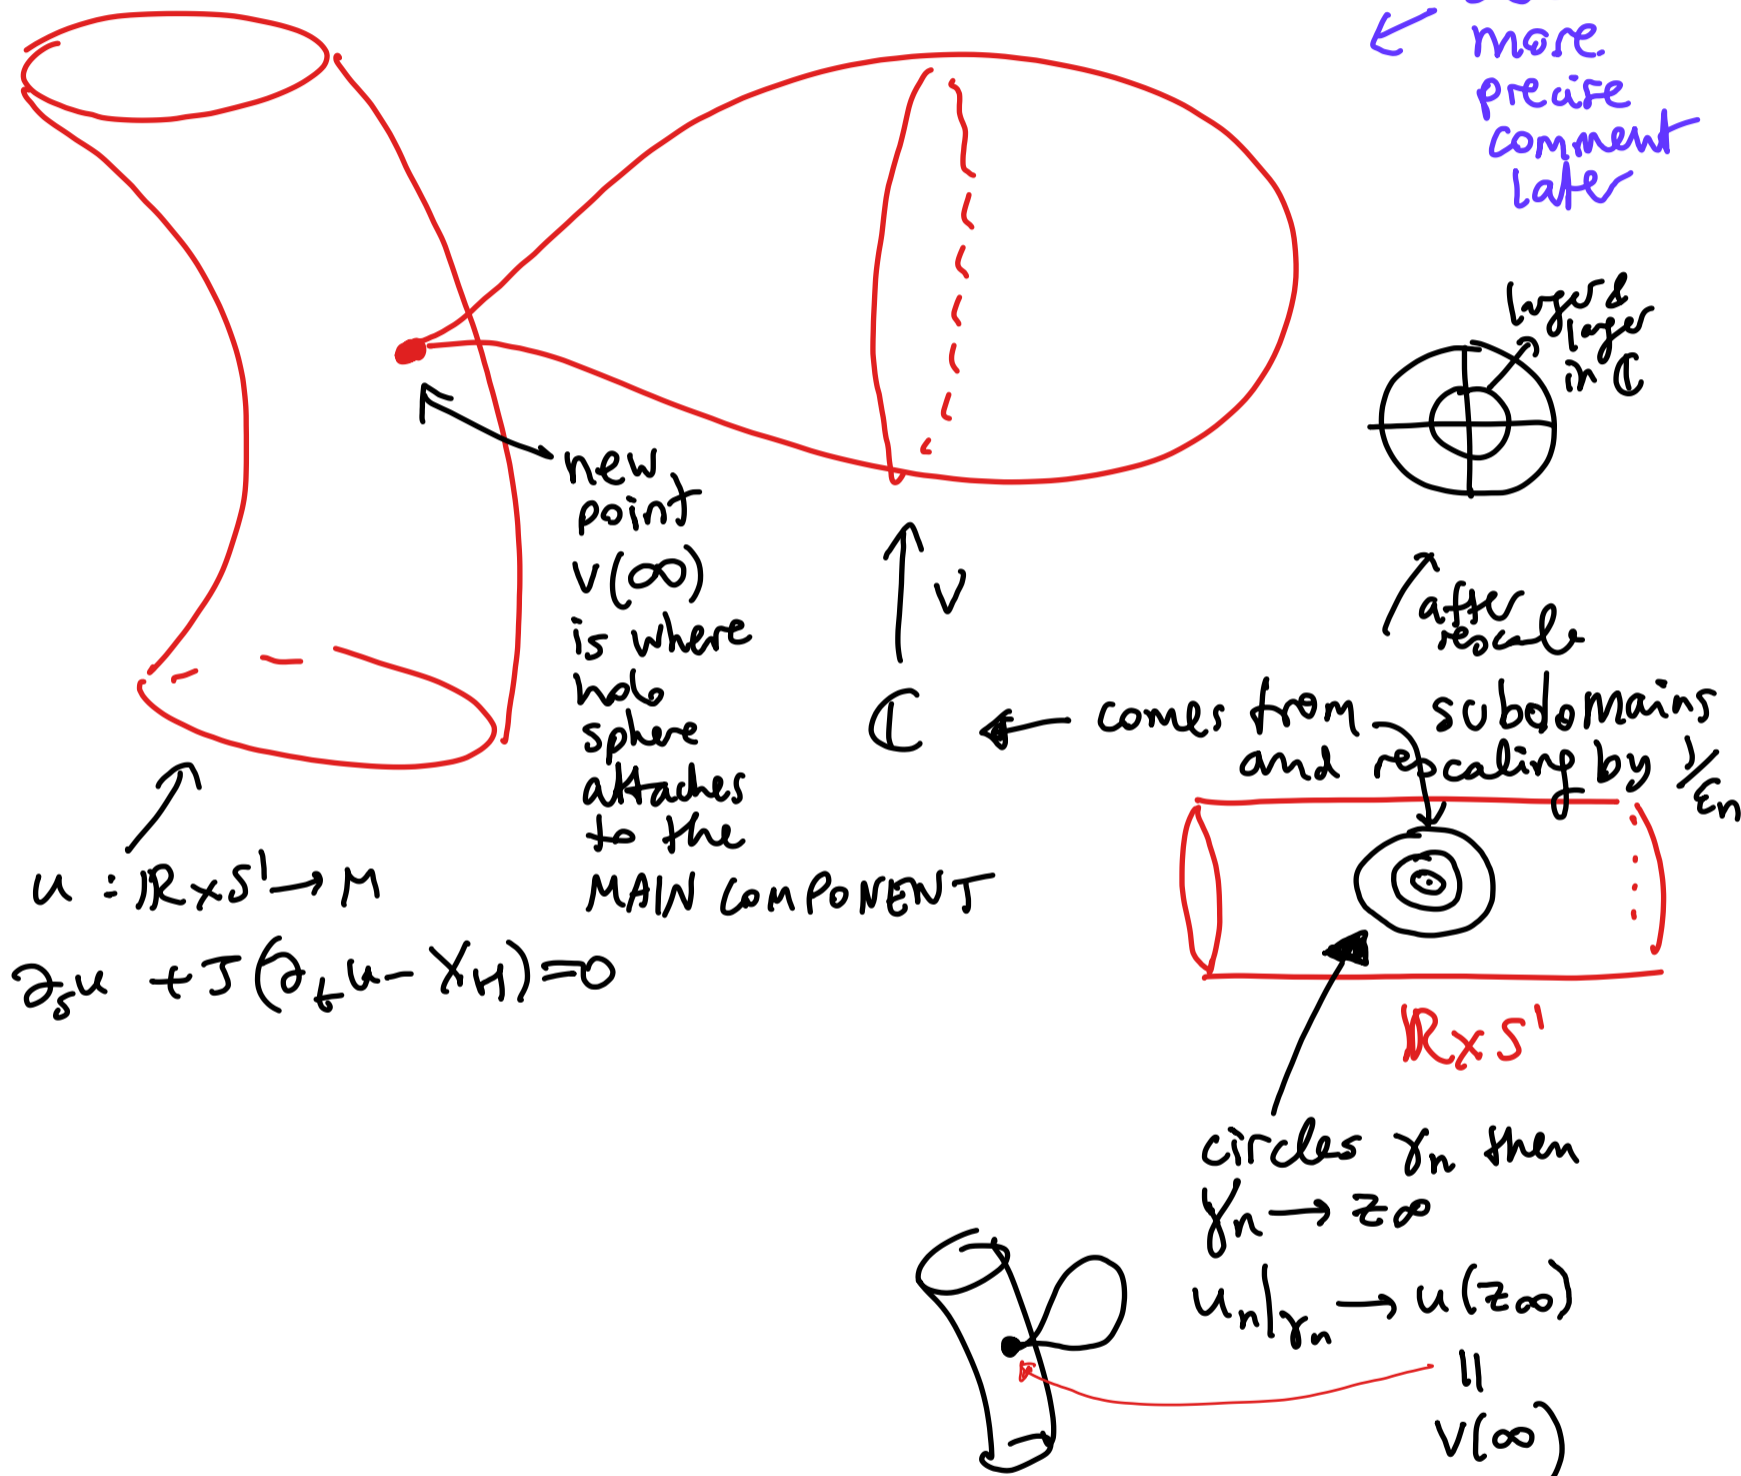 more
precise
comment
later
larger &
larger
in ℂ
new
point
v(∞)
is where
holo
sphere
attaches
to the
MAIN COMPONENT
v
ℂ
after
rescale
comes from subdomains
and rescaling by 1/εn
u : ℝ×S¹ → M
∂su + J(∂tu − XH) = 0
ℝ×S¹
circles γn then
γn → z∞
un|γn → u(z∞)
||
v(∞)